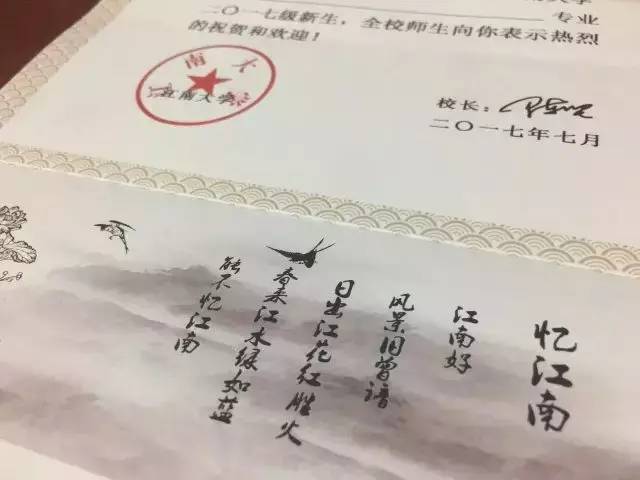 专业
二〇一七级新生，全校师生向你表示热烈
的祝贺和欢迎！
江南大学
校长：
二〇一七年七月
忆江南
江南好
风景旧曾谙
日出江花红胜火
春来江水绿如蓝
能不忆江南